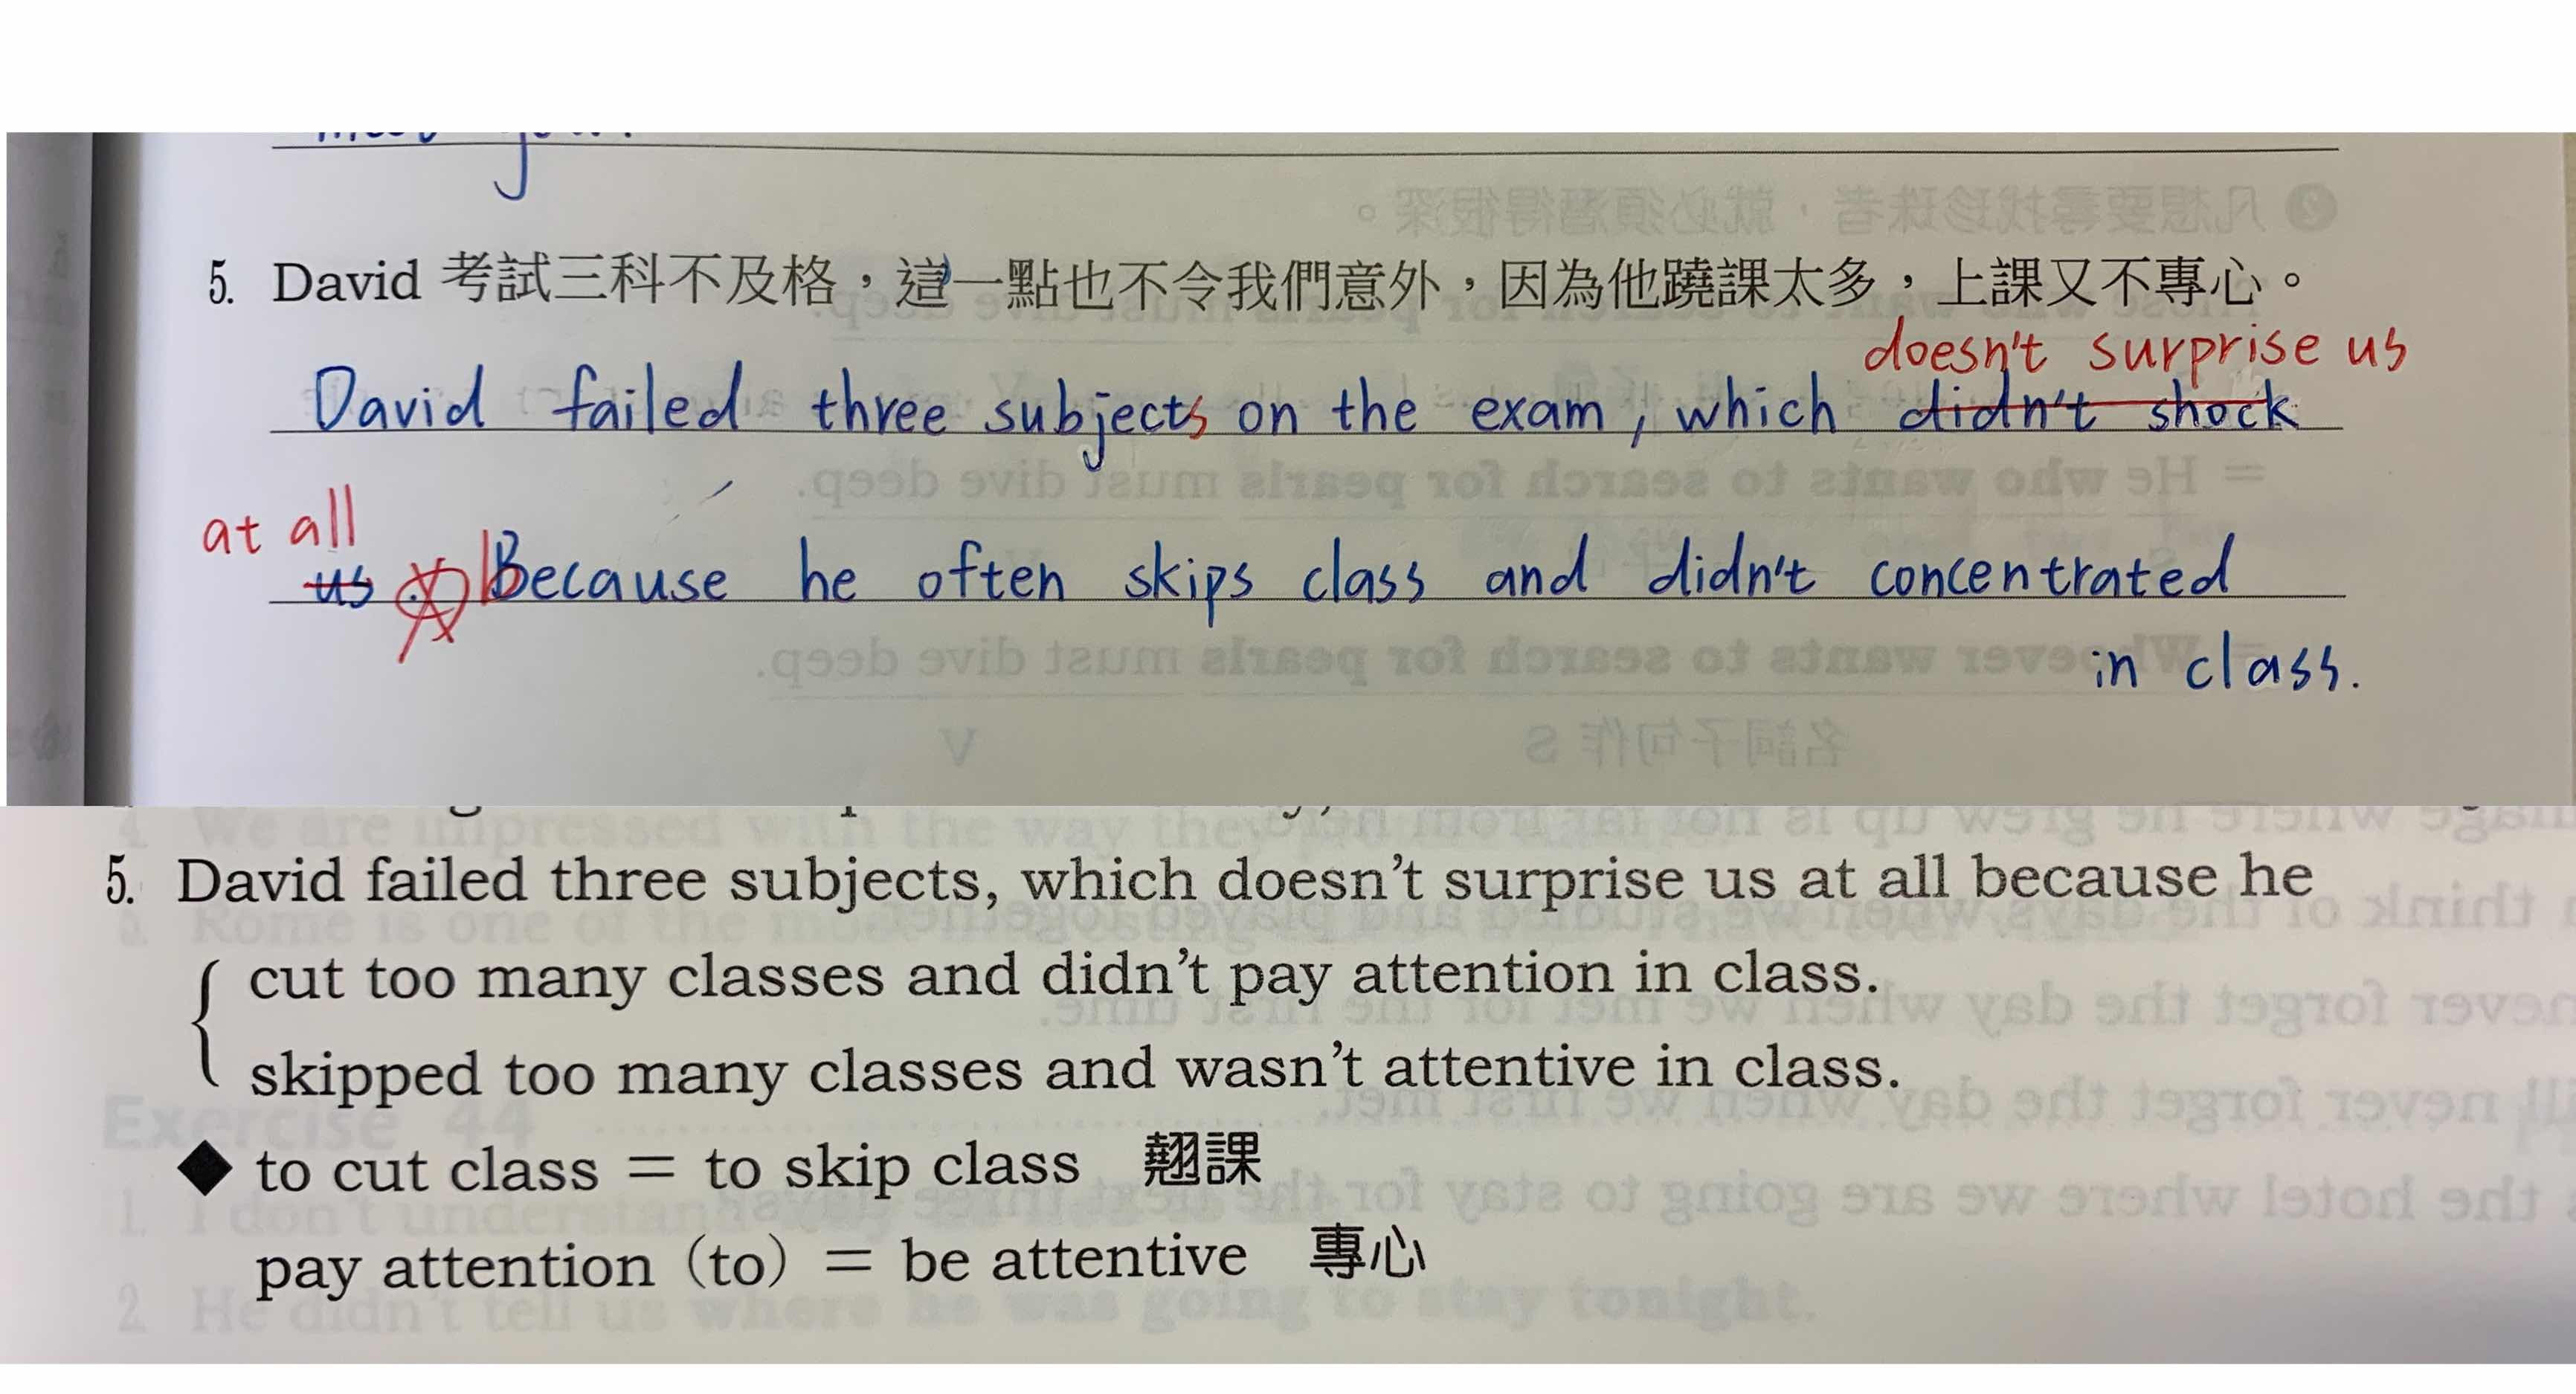 5. David 考試三科不及格，這一點也不令我們意外，因為他蹺課太多，上課又不專心。
doesn't surprise us
David failed three subjects on the exam, which didn't shock
at all
us. Because he often skips class and didn't concentrated
in class.
5. David failed three subjects, which doesn't surprise us at all because he
cut too many classes and didn't pay attention in class.
skipped too many classes and wasn't attentive in class.
◆ to cut class = to skip class 翹課
pay attention (to) = be attentive 專心